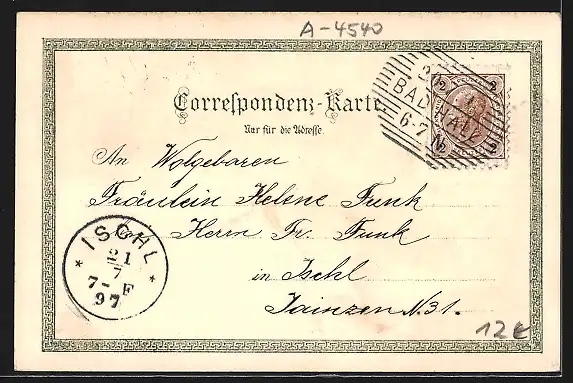 A-4540
2 2
BAD HALL
6-7 N
2 2
Correspondenz-Karte
Nur für die Adresse.
An Wolgeboren
Fräulein Helene Funk
Herrn Fr. Funk
in Ischl
Jainzen N 31.
ISCHL
21
7
7-F
97
12€